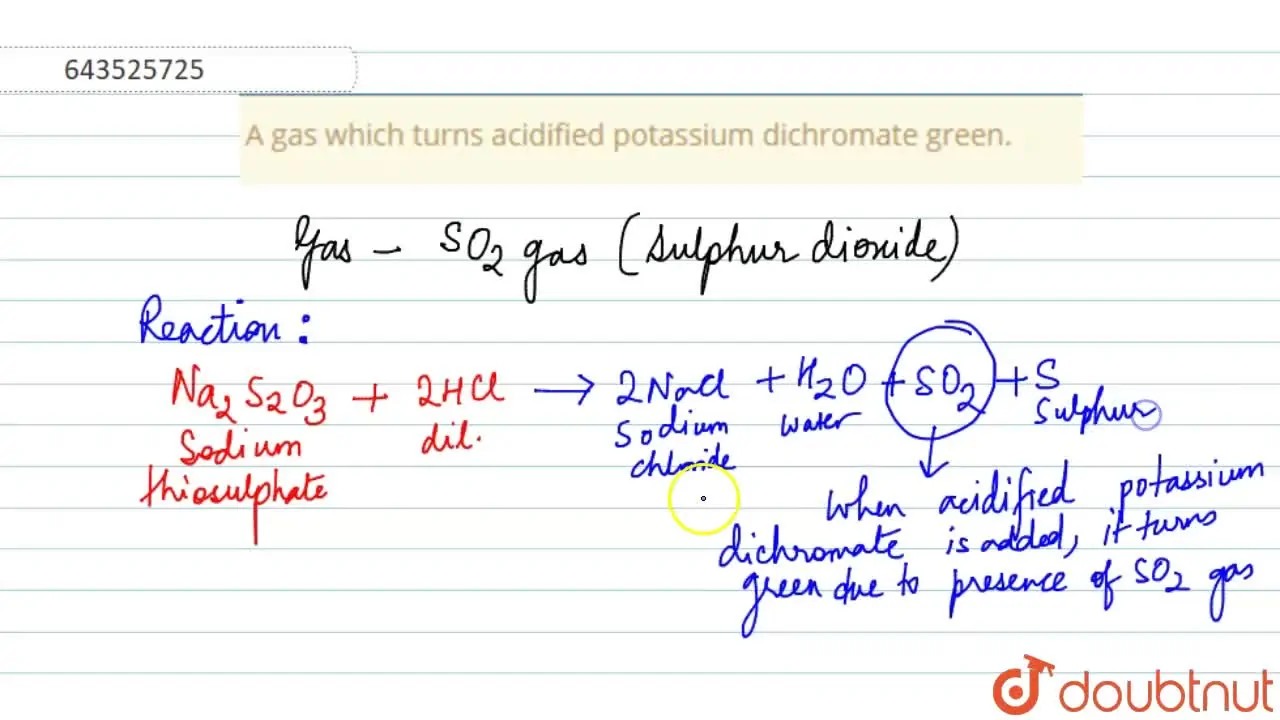 643525725
A gas which turns acidified potassium dichromate green.
Gas - SO2 gas (Sulphur dioxide)
Reaction :
Na2S2O3 + 2HCl → 2NaCl + H2O + SO2 + S
Sodium thiosulphate
dil.
Sodium chloride
water
Sulphur
When acidified potassium
dichromate is added, it turns
green due to presence of SO2 gas
doubtnut